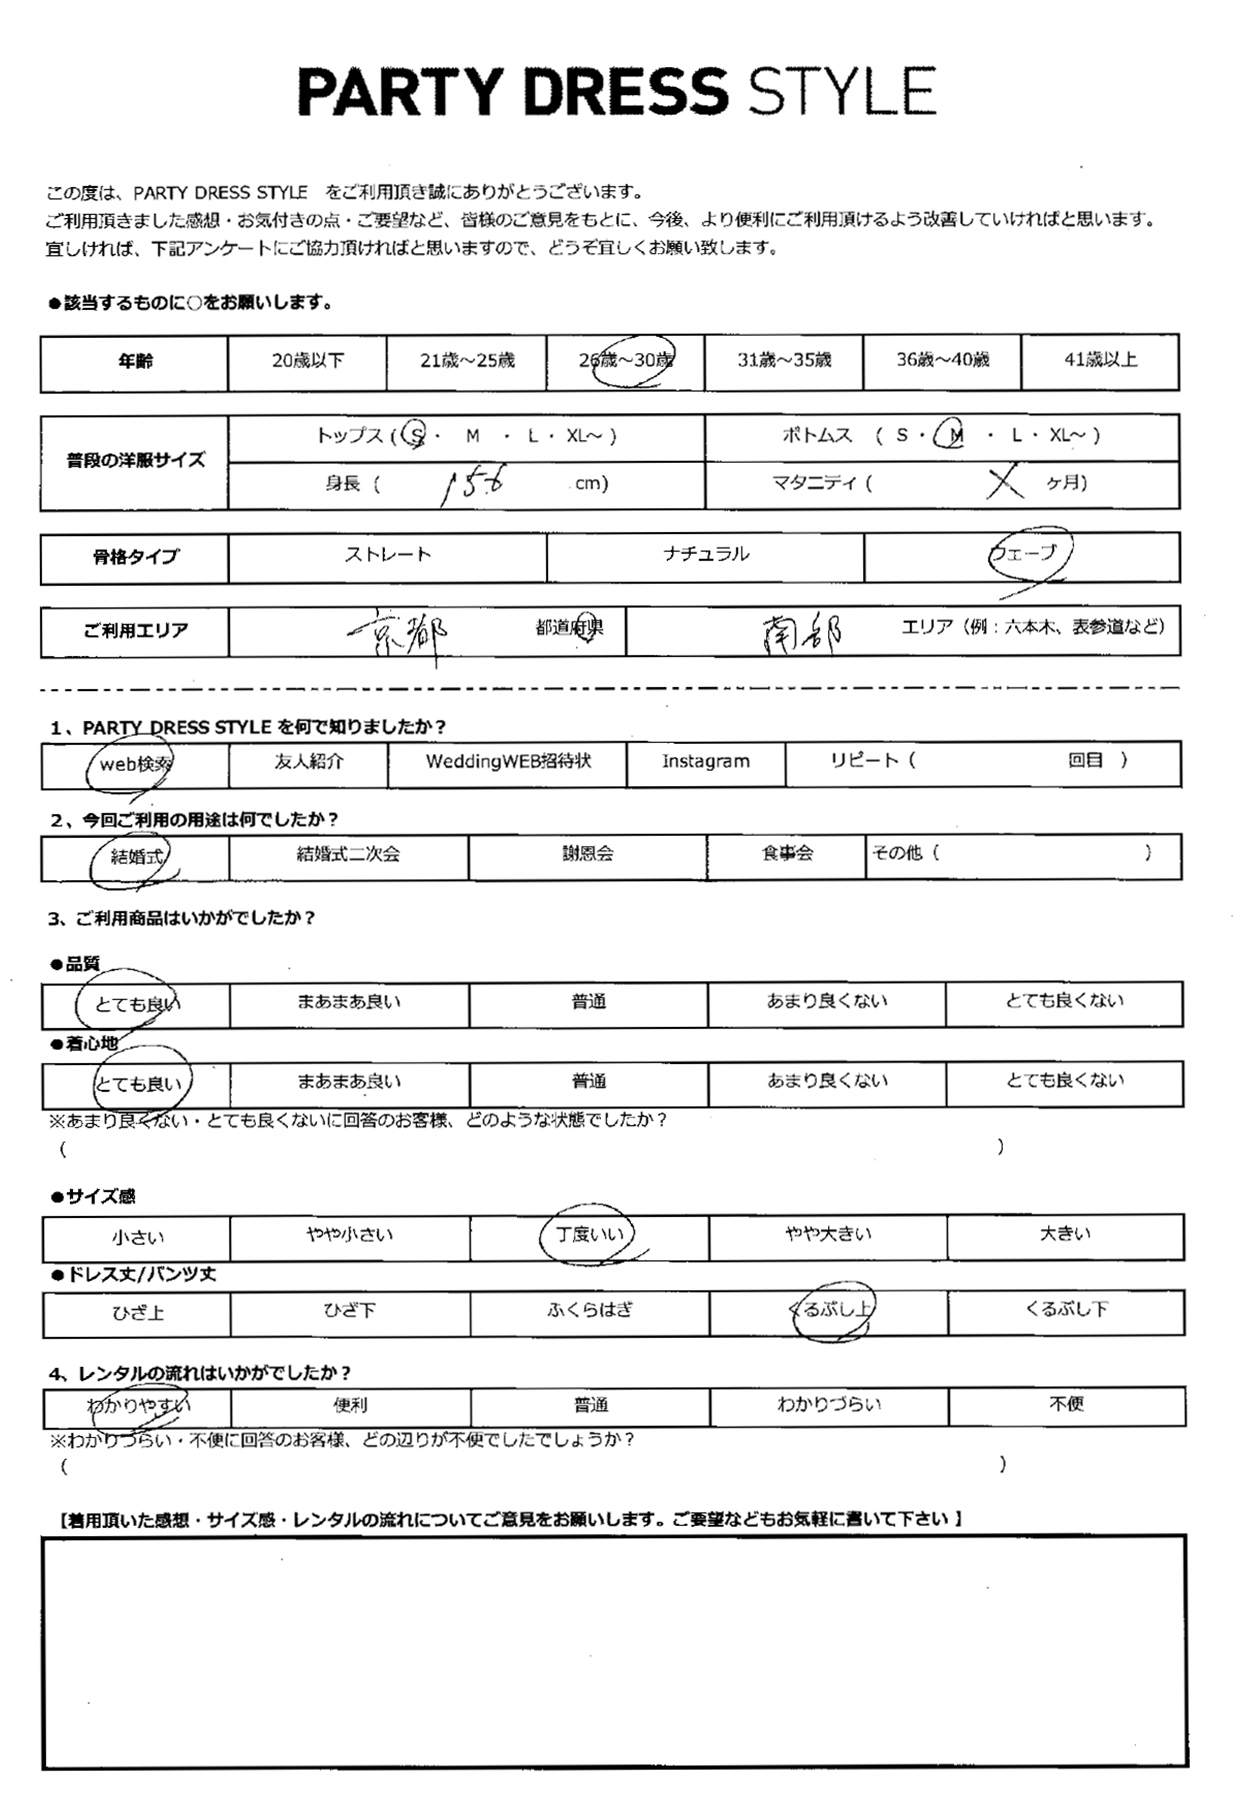 PARTY DRESS STYLE
この度は、PARTY DRESS STYLE をご利用頂き誠にありがとうございます。
ご利用頂きました感想・お気付きの点・ご要望など、皆様のご意見をもとに、今後、より便利にご利用頂けるよう改善していければと思います。
宜しければ、下記アンケートにご協力頂ければと思いますので、どうぞ宜しくお願い致します。
●該当するものに○をお願いします。
年齢 20歳以下 21歳～25歳 26歳～30歳 31歳～35歳 36歳～40歳 41歳以上
普段の洋服サイズ
トップス (S・ M ・ L・XL～ ) ボトムス ( S・M ・ L・XL～ )
身長 ( 156 cm) マタニティ ( × ヶ月)
骨格タイプ ストレート ナチュラル ウェーブ
ご利用エリア 京都 都道府県 南部 エリア（例：六本木、表参道など）
1、PARTY DRESS STYLE を何で知りましたか？
web検索 友人紹介 WeddingWEB招待状 Instagram リピート（ 回目 ）
2、今回ご利用の用途は何でしたか？
結婚式 結婚式二次会 謝恩会 食事会 その他（ ）
3、ご利用商品はいかがでしたか？
●品質
とても良い まあまあ良い 普通 あまり良くない とても良くない
●着心地
とても良い まあまあ良い 普通 あまり良くない とても良くない
※あまり良くない・とても良くないに回答のお客様、どのような状態でしたか？
（ ）
●サイズ感
小さい やや小さい 丁度いい やや大きい 大きい
●ドレス丈/パンツ丈
ひざ上 ひざ下 ふくらはぎ くるぶし上 くるぶし下
4、レンタルの流れはいかがでしたか？
わかりやすい 便利 普通 わかりづらい 不便
※わかりづらい・不便に回答のお客様、どの辺りが不便でしたでしょうか？
（ ）
【着用頂いた感想・サイズ感・レンタルの流れについてご意見をお願いします。ご要望などもお気軽に書いて下さい 】